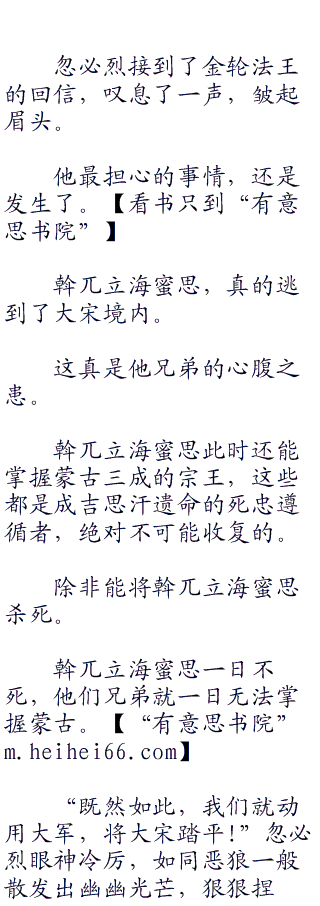 忽必烈接到了金轮法王
的回信，叹息了一声，皱起
眉头。
他最担心的事情，还是
发生了。【看书只到“有意
思书院”】
斡兀立海蜜思，真的逃
到了大宋境内。
这真是他兄弟的心腹之
患。
斡兀立海蜜思此时还能
掌握蒙古三成的宗王，这些
都是成吉思汗遗命的死忠遵
循者，绝对不可能收复的。
除非能将斡兀立海蜜思
杀死。
斡兀立海蜜思一日不
死，他们兄弟就一日无法掌
握蒙古。【“有意思书院”
m.heihei66.com】
“既然如此，我们就动
用大军，将大宋踏平!”忽必
烈眼神冷厉，如同恶狼一般
散发出幽幽光芒，狠狠捏